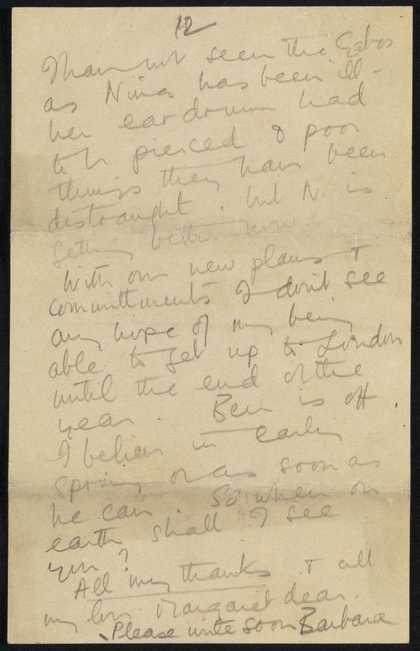 12
I have not seen the Gabos
as Nina has been ill -
her ear drum had
to be pierced & poor
things they have been
distraught. but N. is
getting better now.
With our new plans &
committments I don't see
any hope of my being
able to get up to London
until the end of the
year. Ben is off
I believe in early
spring or as soon as
he can. So when on
earth shall I see
you?
All my thanks & all
my love Margaret dear.
Please write soon Barbara